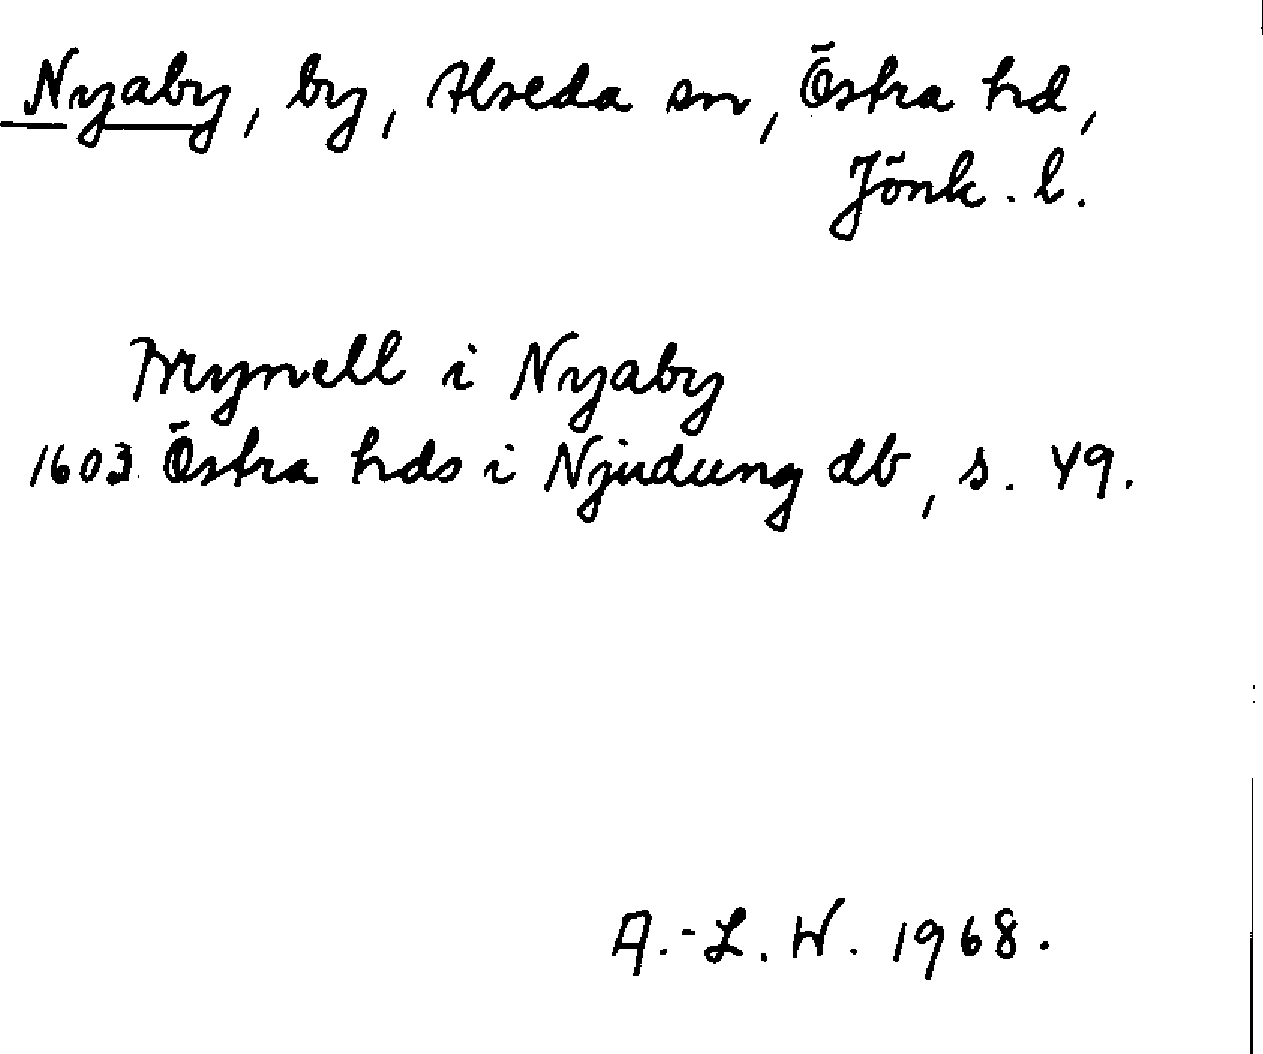 Nyaby, by, Alseda sn, Östra hd,
Jönk. l.
Brynell i Nyaby
1603 Östra hds i Njudung db, s. 49.
A.-L. W. 1968.